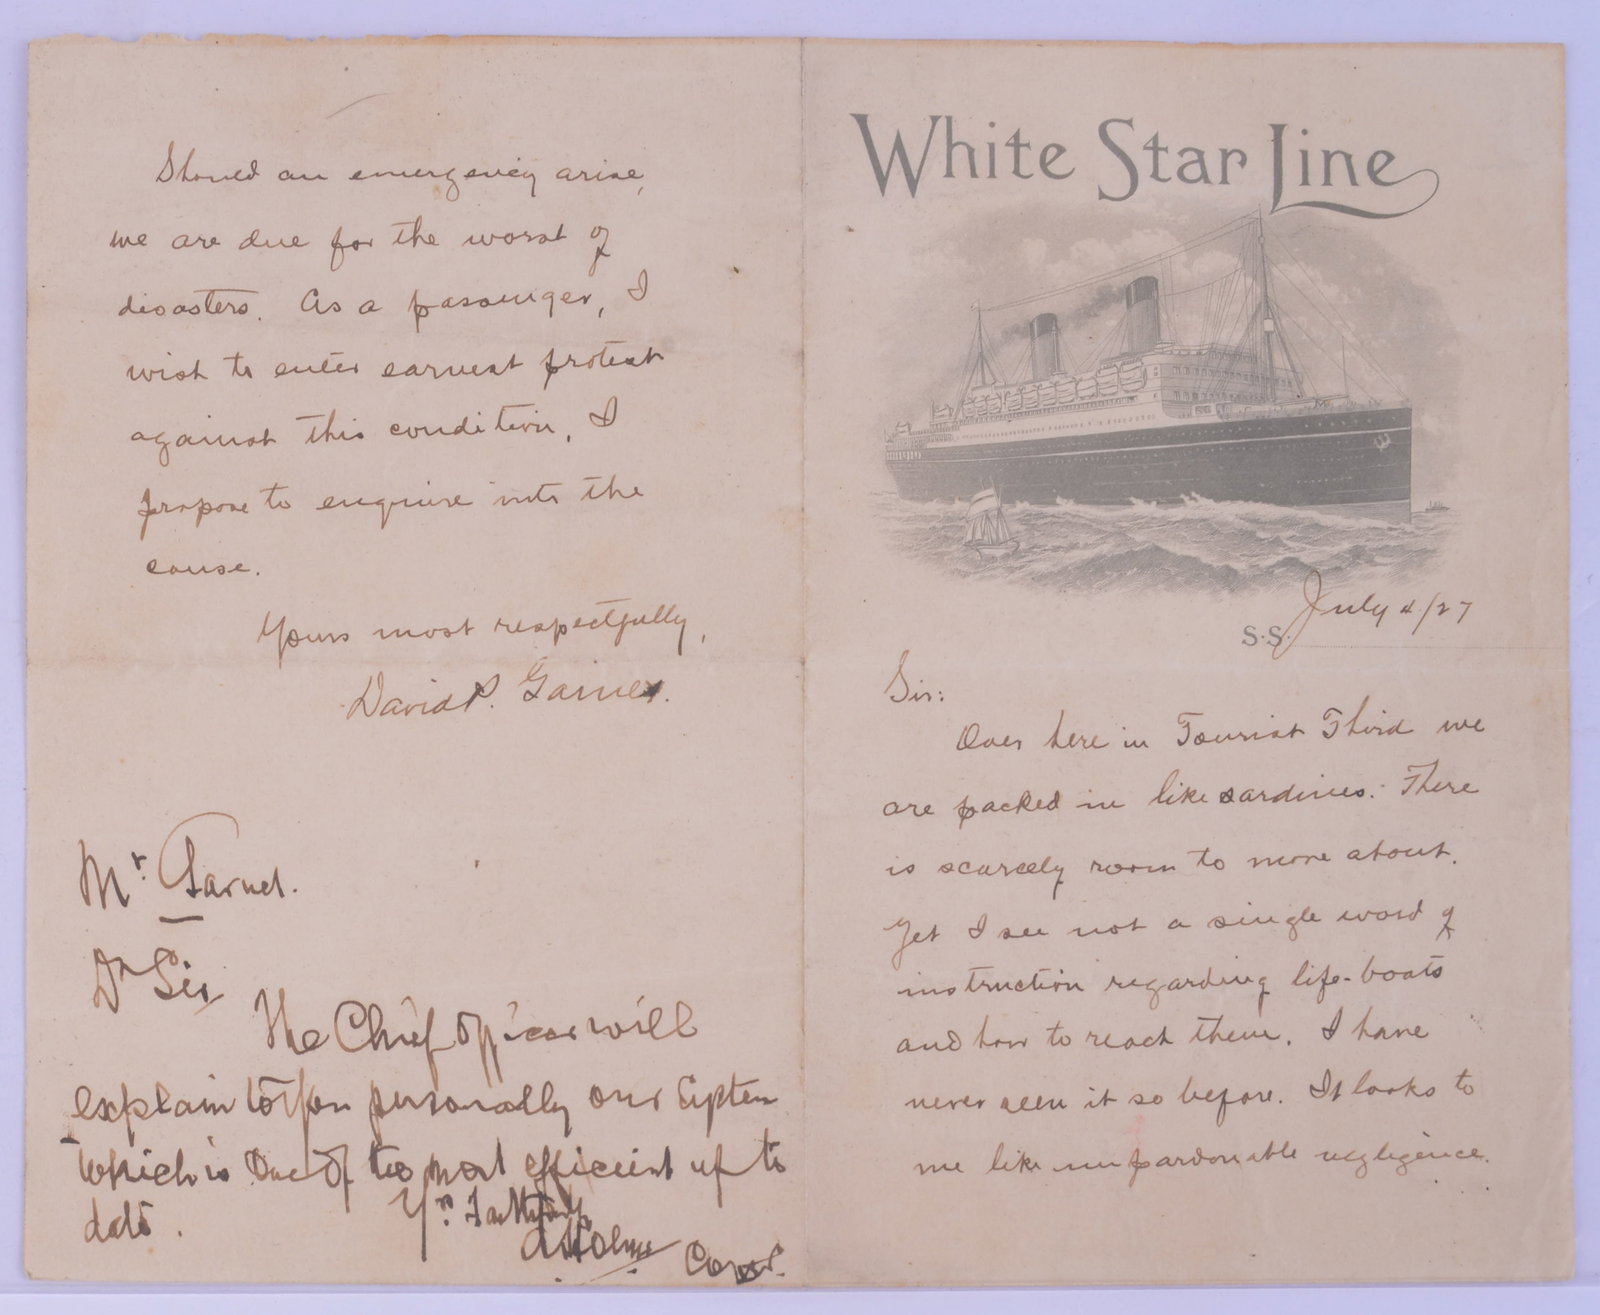 White Star Line
S.S. July 4/27
Sir:
Over here in Tourist Third we
are packed in like sardines. There
is scarcely room to move about.
Yet I see not a single word of
instruction regarding life-boats
and how to reach them. I have
never seen it so before. It looks to
me like unpardonable negligence.
Should an emergency arise,
we are due for the worst of
disasters. As a passenger, I
wish to enter earnest protest
against this condition. I
propose to enquire into the
cause.
Yours most respectfully,
David P. Gaines.
Mr.
Dr Sir
The Chief officer will
explain to you personally our System
which is One of the most efficient up to
date.
Yrs Faithfully